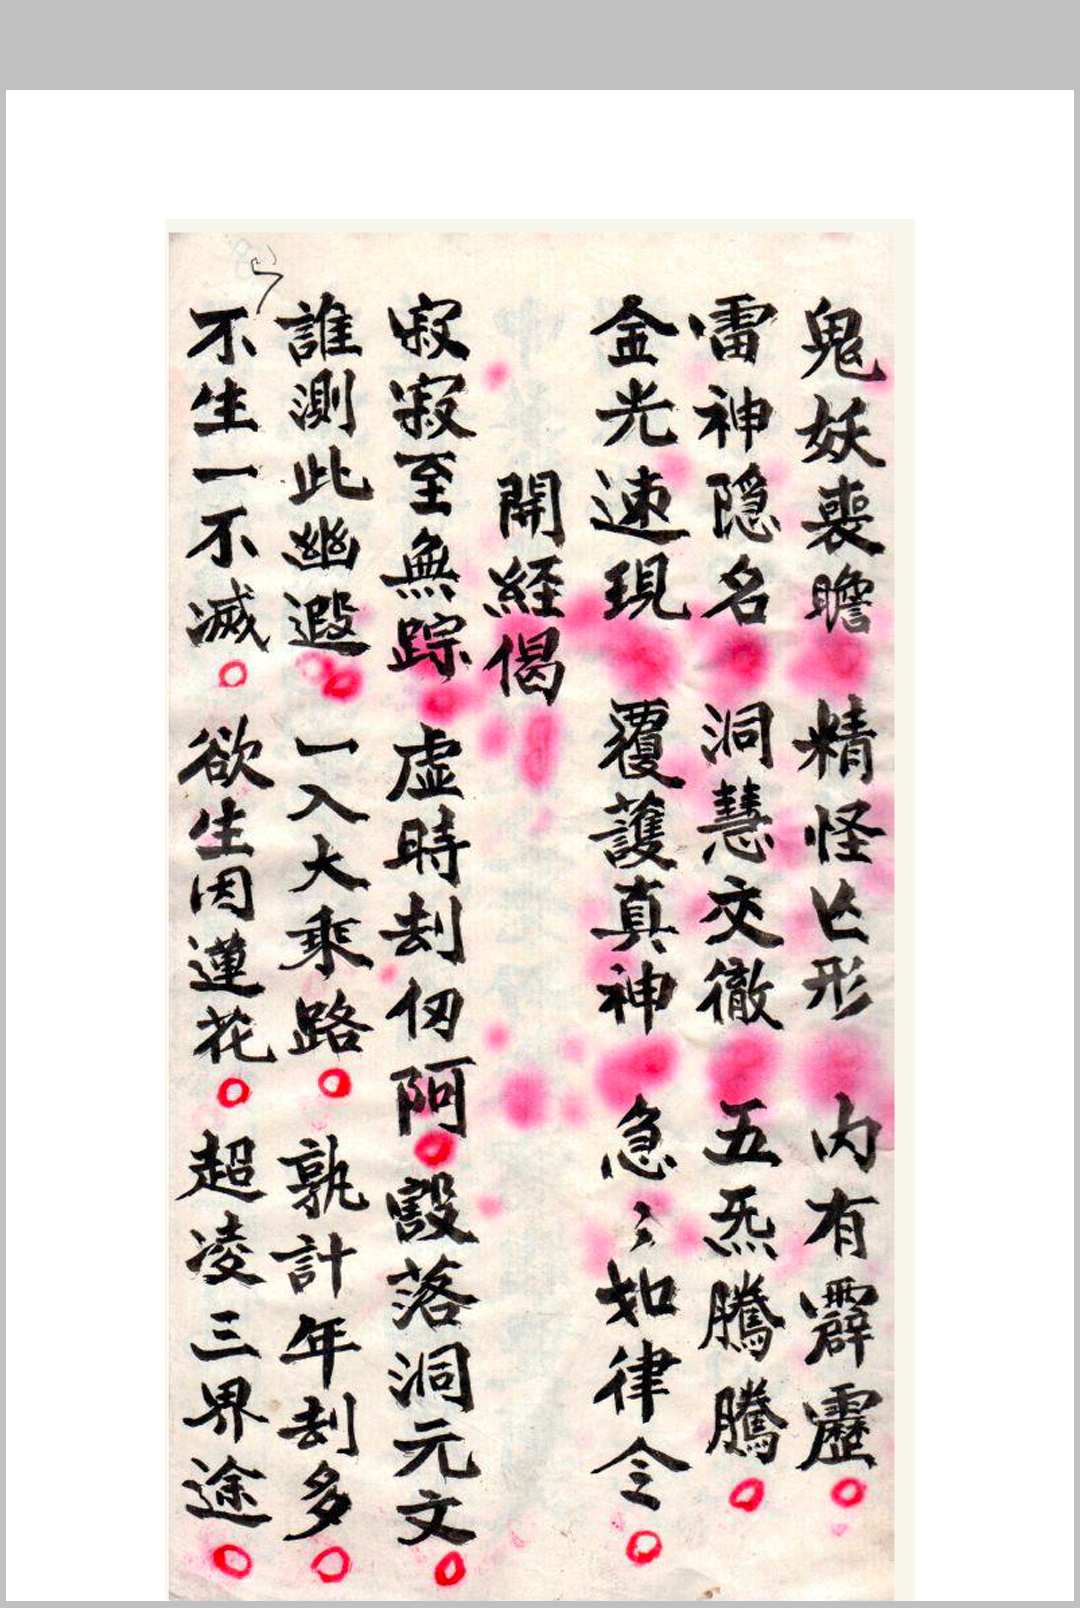 鬼妖喪瞻 精怪亾形 内有霹靂
雷神隠名 洞慧交徹 五炁騰騰
金光速現 覆護真神 急〻如律令
開経偈
寂寂至無踪 虚時刦仞阿 豁落洞元文
誰測此幽遐 一入大乘路 孰計年刦多
不生一不滅 欲生因蓮花 超凌三界途